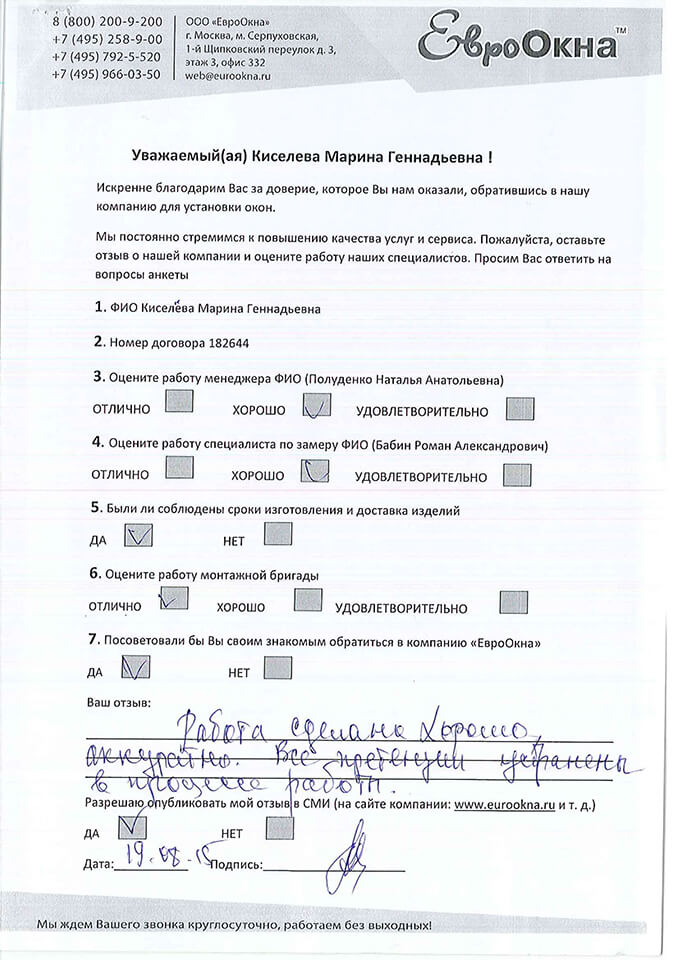 8 (800) 200-9-200
+7 (495) 258-9-00
+7 (495) 792-5-520
+7 (495) 966-03-50
ООО «ЕвроОкна»
г. Москва, м. Серпуховская,
1-й Щипковский переулок д. 3,
этаж 3, офис 332
web@eurookna.ru
ЕвроОкна™
Уважаемый(ая) Киселева Марина Геннадьевна !
Искренне благодарим Вас за доверие, которое Вы нам оказали, обратившись в нашу
компанию для установки окон.
Мы постоянно стремимся к повышению качества услуг и сервиса. Пожалуйста, оставьте
отзыв о нашей компании и оцените работу наших специалистов. Просим Вас ответить на
вопросы анкеты
1. ФИО Киселёва Марина Геннадьевна
2. Номер договора 182644
3. Оцените работу менеджера ФИО (Полуденко Наталья Анатольевна)
ОТЛИЧНО ХОРОШО УДОВЛЕТВОРИТЕЛЬНО
4. Оцените работу специалиста по замеру ФИО (Бабин Роман Александрович)
ОТЛИЧНО ХОРОШО УДОВЛЕТВОРИТЕЛЬНО
5. Были ли соблюдены сроки изготовления и доставка изделий
ДА НЕТ
6. Оцените работу монтажной бригады
ОТЛИЧНО ХОРОШО УДОВЛЕТВОРИТЕЛЬНО
7. Посоветовали бы Вы своим знакомым обратиться в компанию «ЕвроОкна»
ДА НЕТ
Ваш отзыв:
Работа сделана хорошо,
аккуратно. Все претензии устранены
в процессе работы.
Разрешаю опубликовать мой отзыв в СМИ (на сайте компании: www.eurookna.ru и т. д.)
ДА НЕТ
Дата: 19.08.15 Подпись:
Мы ждем Вашего звонка круглосуточно, работаем без выходных!